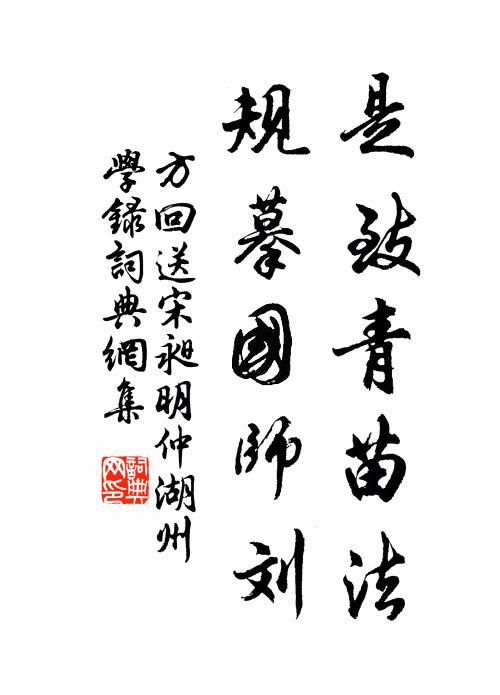 是致青苗法
规摹國師刘
方回送宋昶明仲湖州
學録詞典網集
詞典
网印